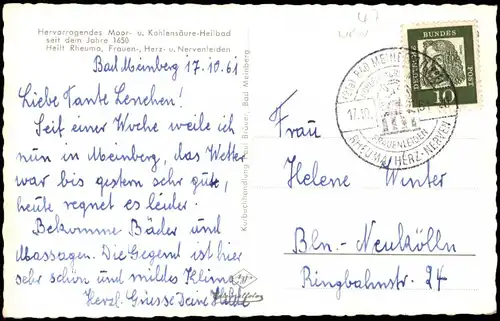 Hervorragendes Moor- u. Kohlensäure-Heilbad
seit dem Jahre 1650
Heilt Rheuma, Frauen-, Herz- u. Nervenleiden
Bad Meinberg 17.10.61
Liebe Tante Lenchen!
Seit einer Woche weile ich
nun in Meinberg, das Wetter
war bis gestern sehr gut,
heute regnet es leider.
Bekomme Bäder und
Massagen. Die Gegend ist hier
sehr schön und mildes Klima
Herzl. Grüsse Deine
Kurbuchhandlung Paul Brüver, Bad Meinberg
47
DEUTSCHE BUNDESPOST
10
BAD MEINBERG
17.10.
FRAUENLEIDEN
RHEUMA/HERZ-NERVEN
Frau
Helene Winter
Bln.-Neukölln
Ringbahnstr. 24